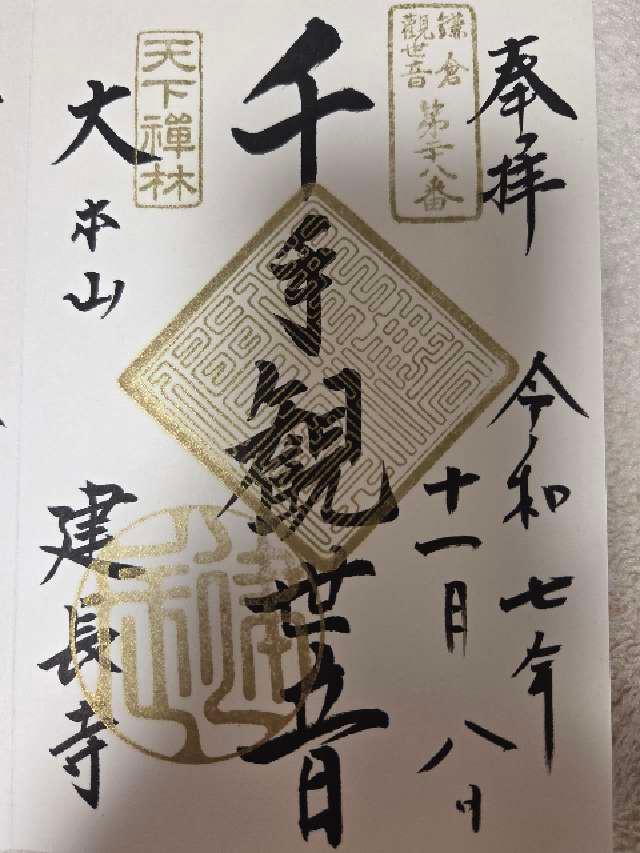 奉拝
令和七年
十一月八日
鎌倉
觀世音
第二十八番
千手観世音
天下禪林
大本山
建長寺